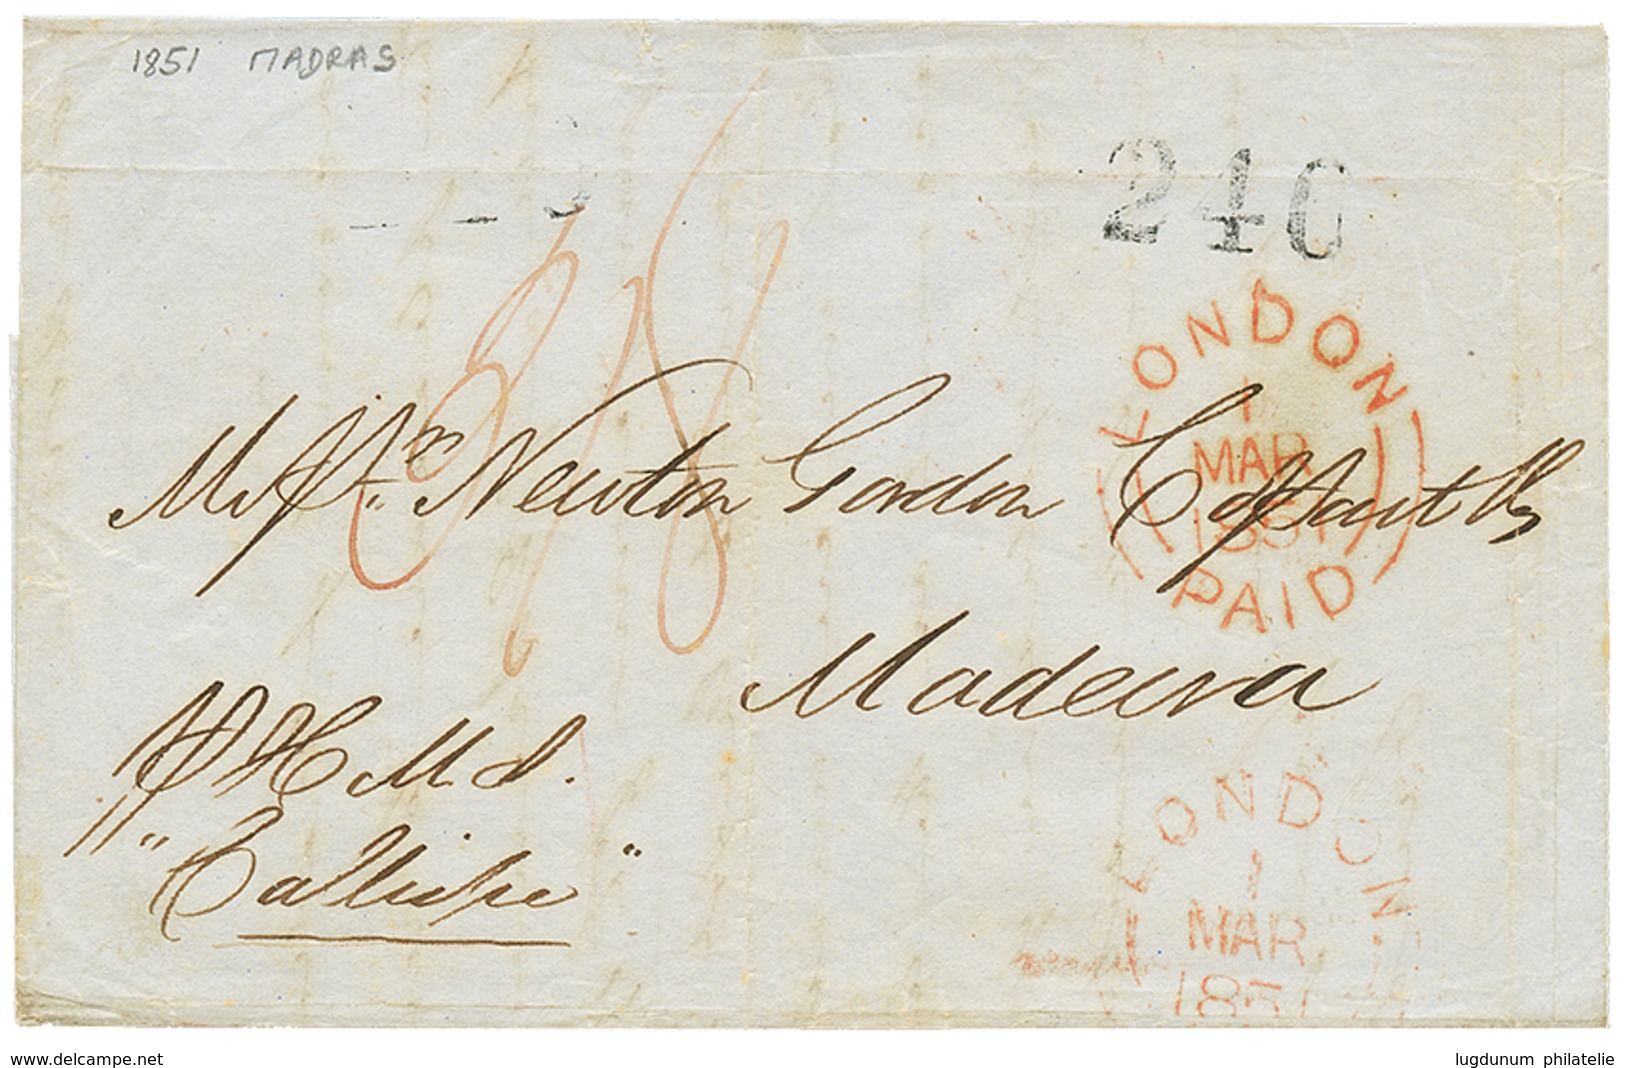 1851 MADRAS
240
3/8
LONDON
1
MAR
1851
PAID
Messrs. Newton Gordon Cossart & Co
Madeira
p H M S.
"Calliope"
LONDON
1
MAR
1851
www.delcampe.net
lugdunum philatelie